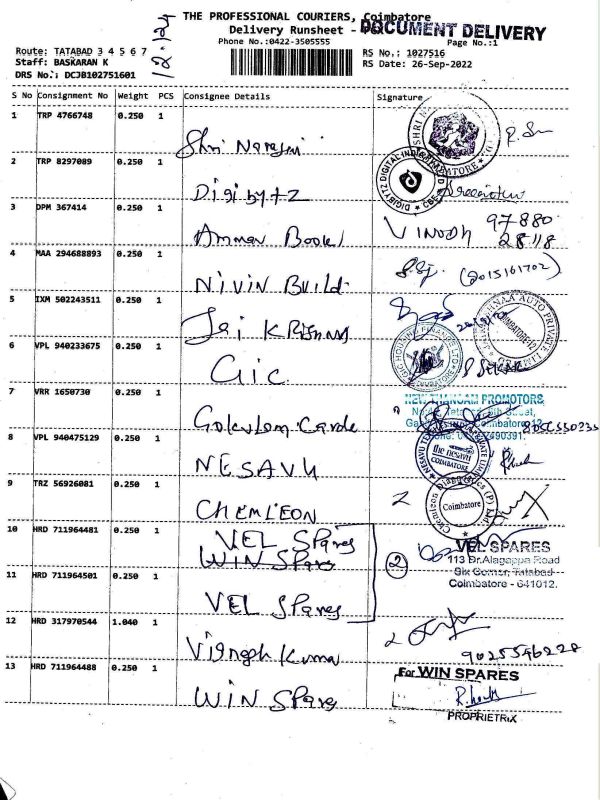 THE PROFESSIONAL COURIERS, Coimbatore
Delivery Runsheet - DOCUMENT DELIVERY
Phone No.:0422-3505555 Page No.:1
Route: TATABAD 3 4 5 6 7 RS No.: 1027516
Staff: BASKARAN K RS Date: 26-Sep-2022
DRS No.: DCJB102751601
S No Consignment No Weight PCS Consignee Details Signature
1 TRP 4766748 0.250 1
Shri Narayani
2 TRP 8297089 0.250 1
Digibytz
DIGIBYTZ DIGITAL INDIA
3 DPM 367414 0.250 1
Amman Book VINODH 97880
28118
4 MAA 294688893 0.250 1
Nivin Build. (2015161702)
5 IXM 502243511 0.250 1
Jai Krishna
AUTO PRIVATE LIMITED COIMBATORE-12
6 VPL 940233675 0.250 1
GIC
GIC HOUSING FINANCE LTD COIMBATORE
SEKAR
7 VRR 1650730 0.250 1
NEW THANGAM PROMOTORS
Gokulam Cards
8 VPL 940475129 0.250 1
NESAVU
the nesavu
COIMBATORE
9 TRZ 56926081 0.250 1
CHEMLEON 2
Chemleon Diagnostics (P) Ltd Coimbatore
10 HRD 711964481 0.250 1
VEL Spares
WIN Spares
2 VEL SPARES
113 Dr.Alagappa Road
Six Corner, Tatabad
Coimbatore - 641012.
11 HRD 711964501 0.250 1
VEL Spares
12 HRD 317970544 1.040 1
Vignesh Kumar 2
9025596228
13 HRD 711964488 0.250 1
For WIN SPARES
WIN Spares
PROPRIETRIX